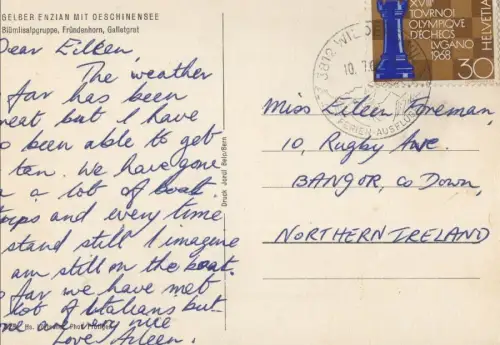 GELBER ENZIAN MIT OESCHINENSEE
Blümlisalpgruppe, Fründenhorn, Galletgrat
Dear Eileen,
The weather
far has been
but I have
been able to get
tan. We have gone
a lot of boat
and every time
stand still I imagine
am still on the boat.
far we have met
lot of Italians but
are very nice
Love Aileen.
Druck Jordi Belp/Bern
XVIII
TOURNOI
OLYMPIQUE
D'ECHECS
LUGANO
1968
30
HELVETIA
3812 WIL
10.
FERIEN-AUSFLUG
Miss Eileen Foreman,
10, Rugby Ave.
BANGOR, Co Down,
NORTHERN IRELAND